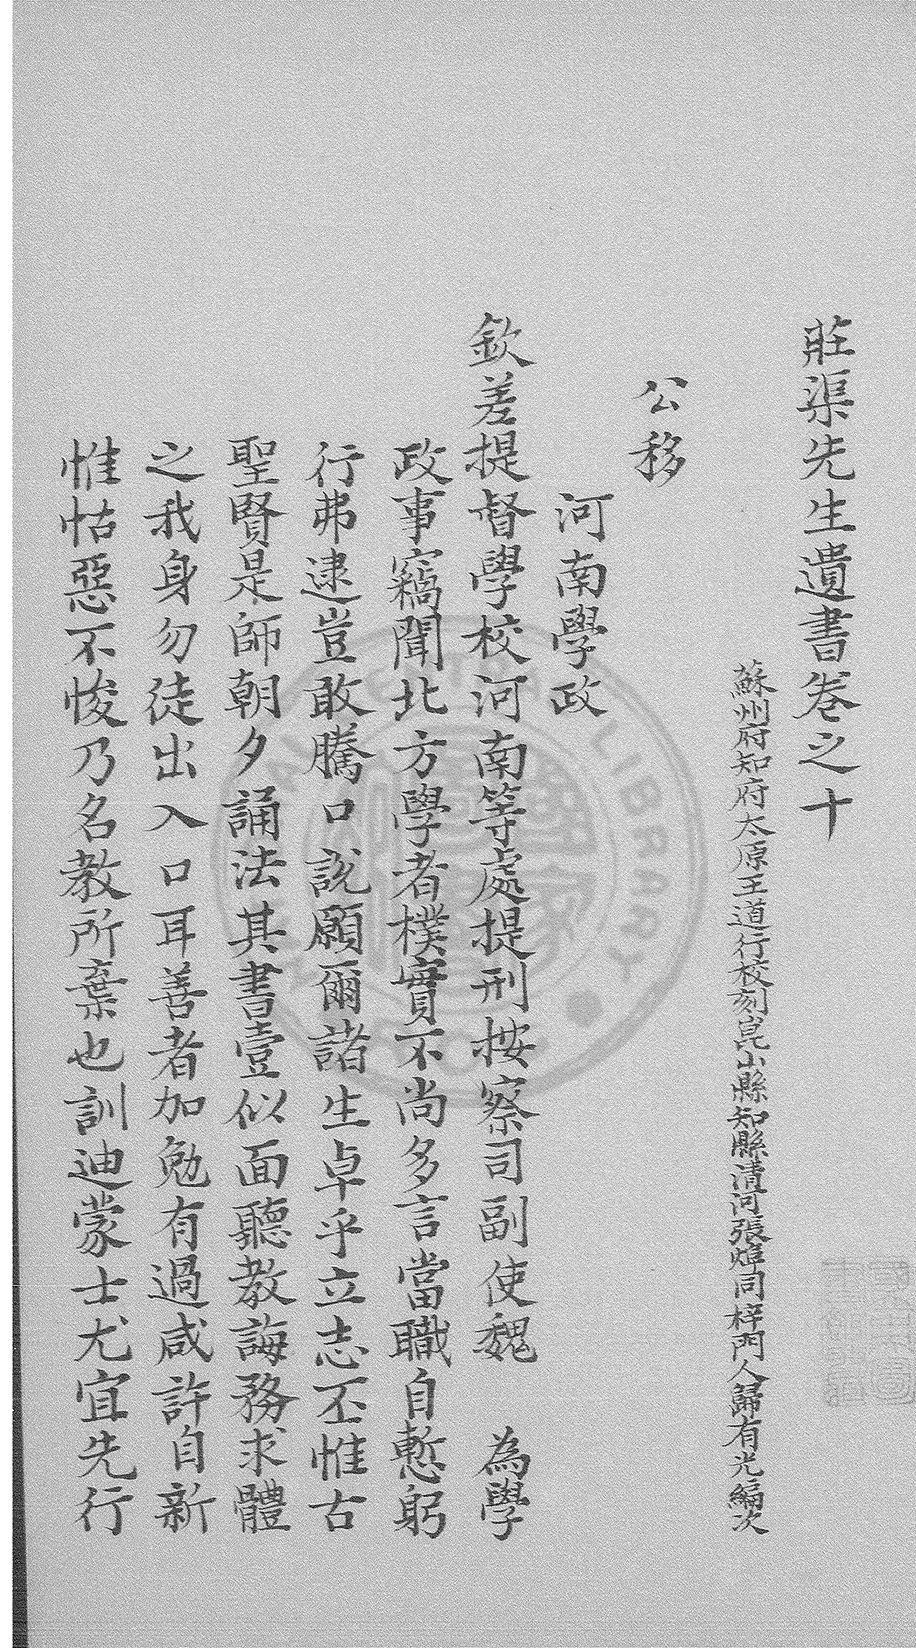 莊渠先生遺書卷之十
蘇州府知府太原王道行校刻崑山縣知縣清河張焯同梓門人歸有光編次
公移
河南學政
欽差提督學校河南等處提刑按察司副使魏 為學
政事竊聞北方學者樸實不尚多言當職自慙躬
行弗逮豈敢騰口說願爾諸生卓乎立志丕惟古
聖賢是師朝夕誦法其書壹似面聽教誨務求體
之我身勿徒出入口耳善者加勉有過咸許自新
惟怙惡不悛乃名教所棄也訓迪蒙士尤宜先行
LIBRARY